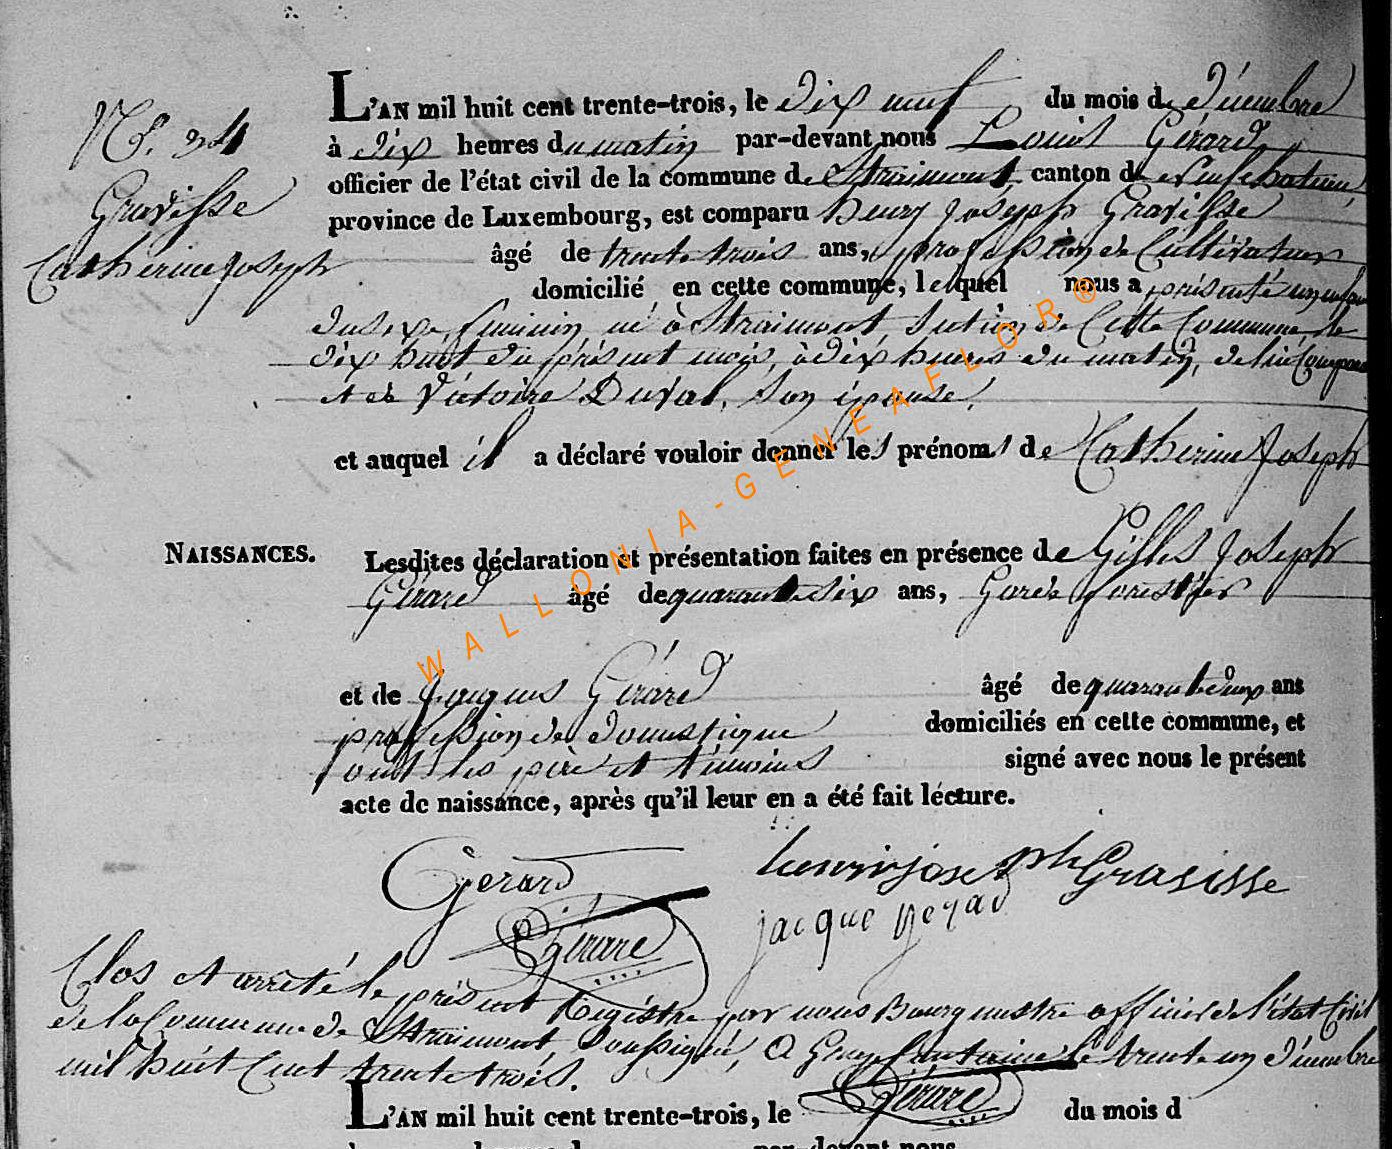 L'AN mil huit cent trente-trois, le dix neuf du mois de décembre
à dix heures du matin par-devant nous Louis Gérard
officier de l'état civil de la commune de Straimont, canton de Neufchateau,
province de Luxembourg, est comparu henry Joseph Gravisse
âgé de trente trois ans, profession de Cultivateur
domicilié en cette commune, lequel nous a présenté un enfant
du sexe feminin né à Straimont Section de Cette Commune le
dix huit du présent mois, à dix heures du matin, de lui Comparant
et de Victoire Duval, Son épouse,
et auquel il a déclaré vouloir donner les prénoms de Catherine Joseph
No. 24
Gravisse
Catherine Joseph
NAISSANCES.
Lesdites déclaration et présentation faites en présence de Gilles Joseph
Gérard âgé de quarante six ans, Garde forestier
et de Jacques Gérard âgé de quarante deux ans
profession de domestique domiciliés en cette commune, et
ont les père et témoins signé avec nous le présent
acte de naissance, après qu'il leur en a été fait lécture.
Gerard henri joseph Gravisse
jacque gerard
Gérard
Clos et arrêté le présent Registre par nous Bourgmestre officier de l'état Civil
de la Commune de Straimont Soussigné, a Grapfontaine le trente un décembre
mil huit Cent trente trois.
Gérard
L'AN mil huit cent trente-trois, le du mois d
par-devant nous
WALLONIA-GENEAFLOR®